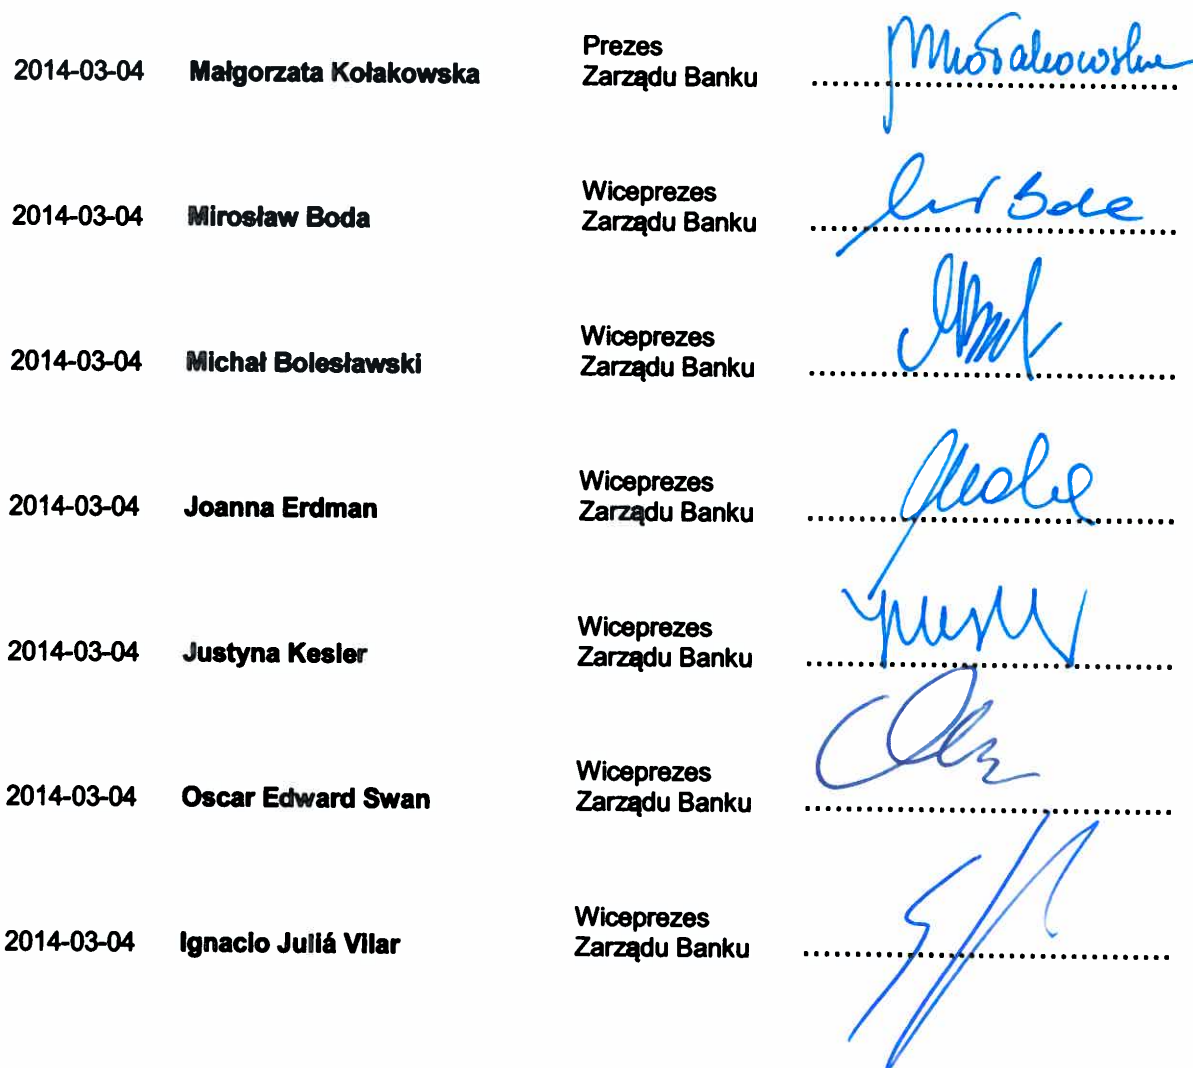 2014-03-04 Małgorzata Kołakowska Prezes
Zarządu Banku
2014-03-04 Mirosław Boda Wiceprezes
Zarządu Banku
2014-03-04 Michał Bolesławski Wiceprezes
Zarządu Banku
2014-03-04 Joanna Erdman Wiceprezes
Zarządu Banku
2014-03-04 Justyna Kesler Wiceprezes
Zarządu Banku
2014-03-04 Oscar Edward Swan Wiceprezes
Zarządu Banku
2014-03-04 Ignacio Juliá Vilar Wiceprezes
Zarządu Banku